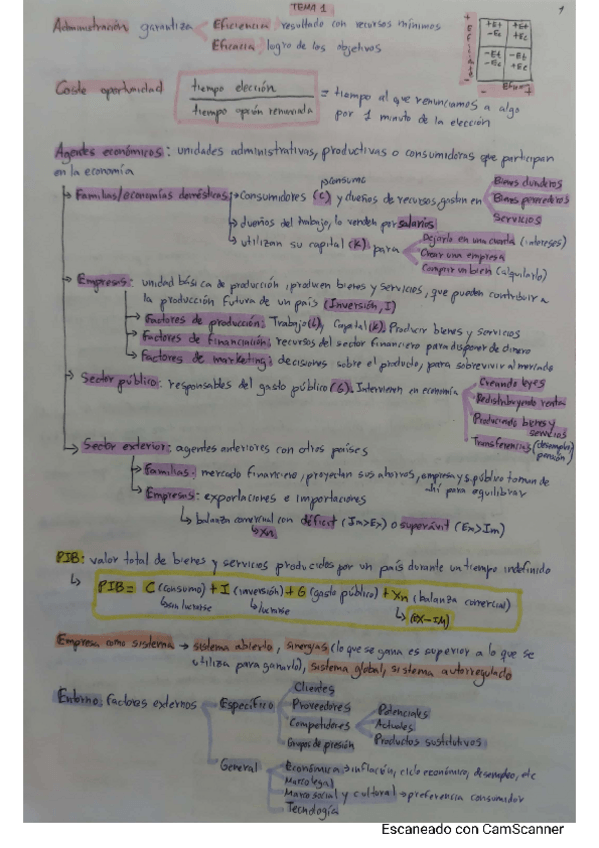 TEMA 1
1
Administración garantiza Eficiencia resultado con recursos mínimos
Eficacia logro de los objetivos
+Et +Et
-Ec +Ec
-Et -Et
-Ec +Ec
Coste oportunidad tiempo elección = tiempo al que renunciamos a algo
tiempo opción renunciada por 1 minuto de la elección
Agentes económicos: unidades administrativas, productivas o consumidoras que participan
en la economía
Familias/economías domésticas: consumidores (C) y dueños de recursos, gastan en
Bienes duraderos
Bienes perecederos
Servicios
dueños del trabajo, lo venden por salarios
utilizan su capital (K) para
Dejarlo en una cuenta (intereses)
Crear una empresa
Comprar un bien (alquilarlo)
Empresas: unidad básica de producción, producen bienes y servicios, que pueden contribuir a
la producción futura de un país (Inversión, I)
Factores de producción: Trabajo (L), Capital (K). Producir bienes y servicios
Factores de financiación: recursos del sector financiero para disponer de dinero
Factores de marketing: decisiones sobre el producto, para sobrevivir al mercado
Sector público: responsables del gasto público (G). Intervienen en economía
Creando leyes
Redistribuyendo rentas
Produciendo bienes y
servicios
Transferencias (desempleo,
pensión)
Sector exterior: agentes anteriores con otros países
Familias: mercado financiero, proyectan sus ahorros, empresa y s. público toman de
ahí para equilibrar
Empresas: exportaciones e importaciones
balanza comercial con déficit (Im>Ex) o superávit (Ex>Im)
Xn
PIB: valor total de bienes y servicios producidos por un país durante un tiempo indefinido
PIB= C (consumo) + I (inversión) + G (gasto público) + Xn (balanza comercial)
sin lucrarse lucrarse (EX-IM)
Empresa como sistema → sistema abierto, sinergias (lo que se gana es superior a lo que se
utiliza para ganarlo), sistema global, sistema autorregulado
Entorno: factores externos
Específico
Clientes
Proveedores
Competidores
Potenciales
Actuales
Productos sustitutivos
Grupos de presión
General
Económica → inflación, ciclo económico, desempleo, etc
Marco legal
Marco social y cultural → preferencia consumidor
Tecnología
Escaneado con CamScanner